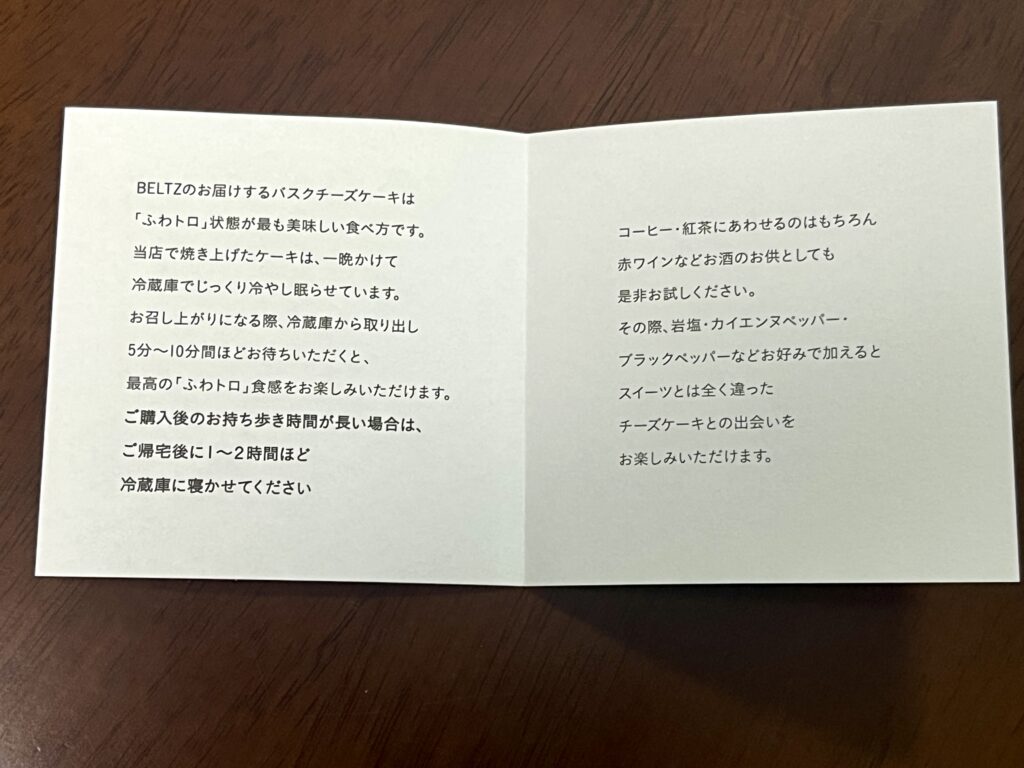 BELTZのお届けするバスクチーズケーキは
「ふわトロ」状態が最も美味しい食べ方です。
当店で焼き上げたケーキは、一晩かけて
冷蔵庫でじっくり冷やし眠らせています。
お召し上がりになる際、冷蔵庫から取り出し
5分〜10分間ほどお待ちいただくと、
最高の「ふわトロ」食感をお楽しみいただけます。
ご購入後のお持ち歩き時間が長い場合は、
ご帰宅後に1〜2時間ほど
冷蔵庫に寝かせてください
コーヒー・紅茶にあわせるのはもちろん
赤ワインなどお酒のお供としても
是非お試しください。
その際、岩塩・カイエンヌペッパー・
ブラックペッパーなどお好みで加えると
スイーツとは全く違った
チーズケーキとの出会いを
お楽しみいただけます。